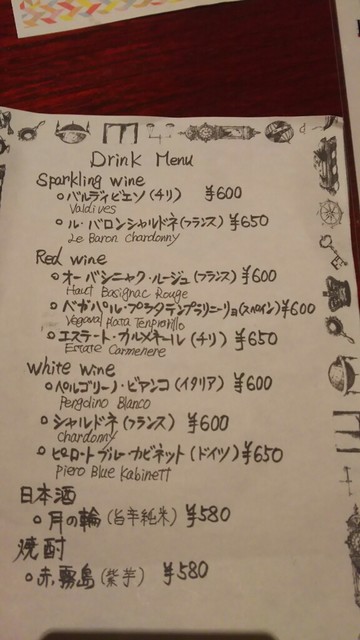 Drink Menu
Sparkling wine
○バルディビエソ(チリ) ¥600
Valdives
○ル・バロンシャルドネ(フランス) ¥650
Le Baron Chardonny
Red wine
○オーバシニャク・ルージュ(フランス) ¥600
Haut Basignac Rouge
○ベガバル・プラタテンプラリニーリョ(スペイン) ¥600
Vegaval plata Tenprarillo
○エステート・カルメネール(チリ) ¥650
Estate Carmenere
White wine
○ペルゴリーノ・ビアンコ(イタリア) ¥600
Pergolino Blanco
○シャルドネ(フランス) ¥600
Chardonny
○ピエロート ブルーカビネット(ドイツ) ¥650
Piero Blue Kabinett
日本酒
○月の輪(旨辛純米) ¥580
焼酎
○赤霧島(紫芋) ¥580